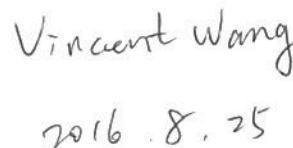 Vincent Wang
2016.8.25